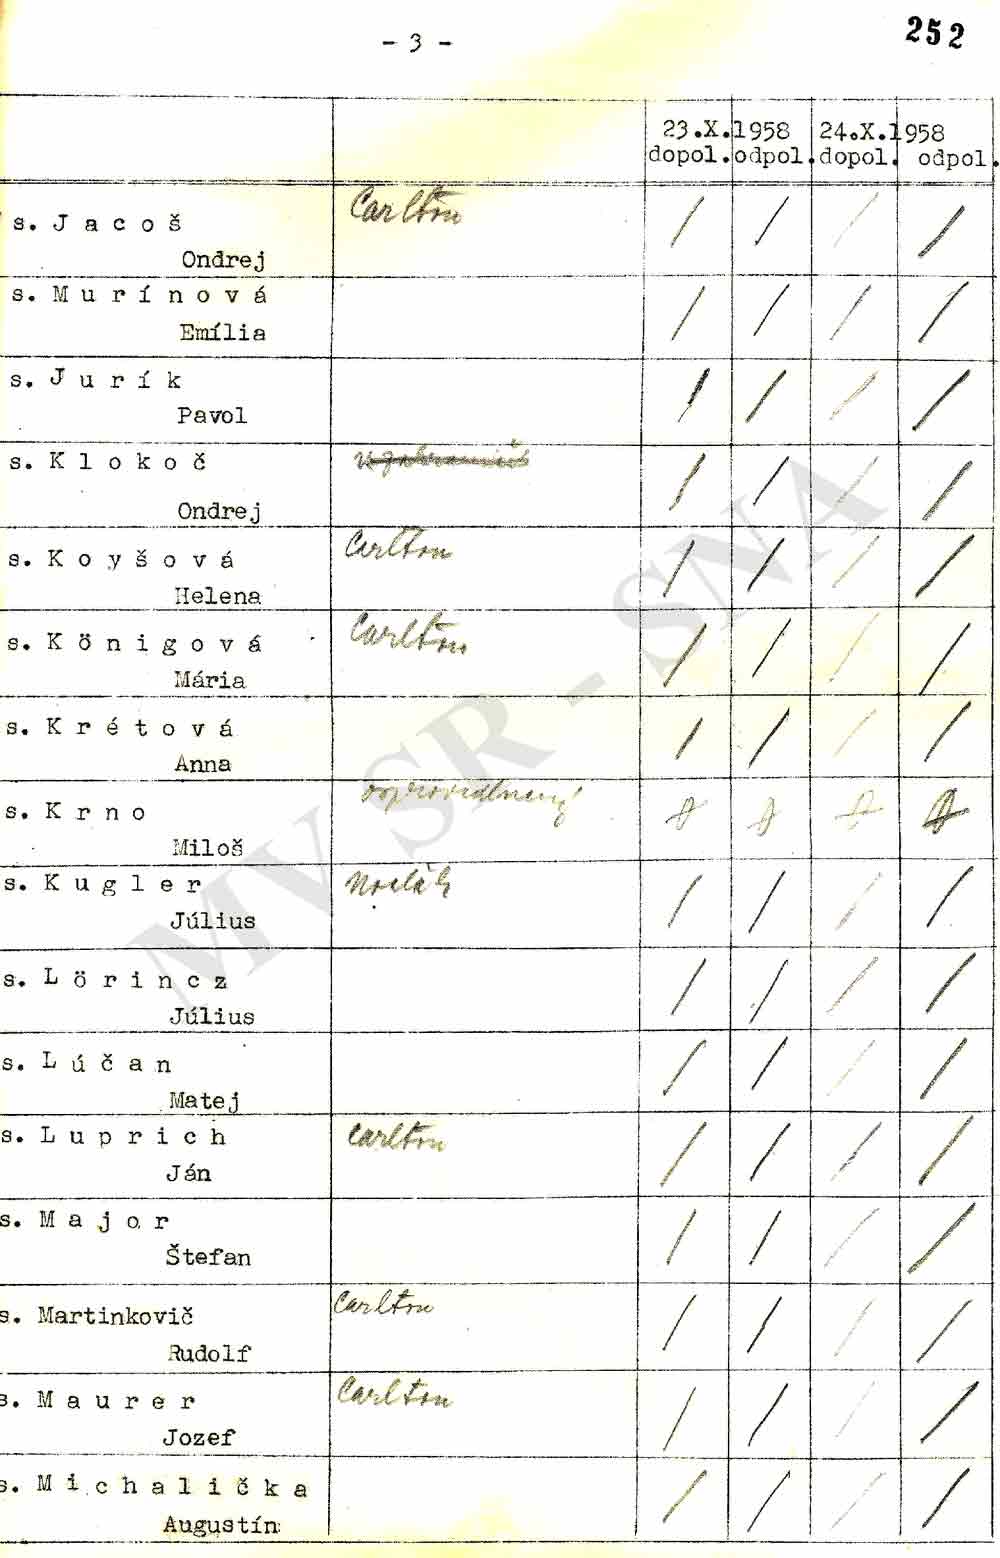 - 3 -
252
23.X.1958 24.X.1958
dopol. odpol. dopol. odpol.
s. Jacoš Carlton / / / /
Ondrej
s. Murínová / / / /
Emília
s. Jurík / / / /
Pavol
s. Klokoč / / / /
Ondrej
s. Koyšová Carlton / / / /
Helena
s. Königová Carlton / / / /
Mária
s. Krétová / / / /
Anna
s. Krno ospravedlnený
Miloš
s. Kugler / / / /
Július
s. Lörincz / / / /
Július
s. Lúčan / / / /
Matej
s. Luprich Carlton / / / /
Ján
s. Major / / / /
Štefan
s. Martinkovič Carlton / / / /
Rudolf
s. Maurer Carlton / / / /
Jozef
s. Michalička / / / /
Augustín
MV SR - SNA